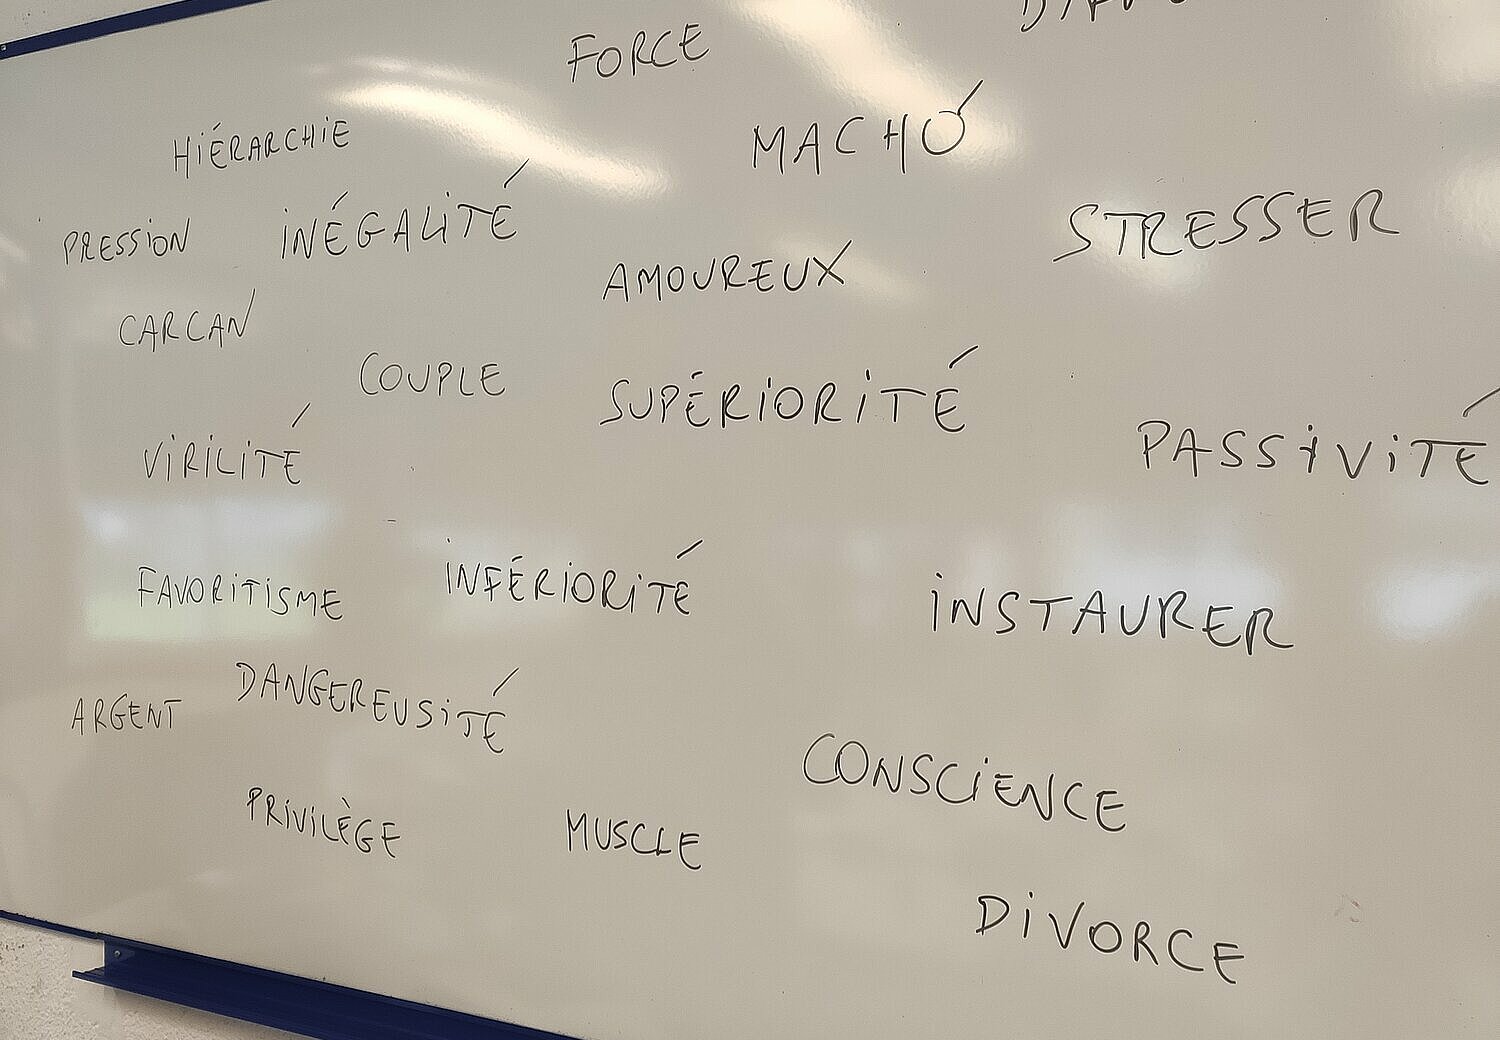 FORCE
HIÉRARCHIE
MACHO
PRESSION
INÉGALITÉ
STRESSER
AMOUREUX
CARCAN
COUPLE
SUPÉRIORITÉ
VIRILITÉ
PASSIVITÉ
FAVORITISME
INFÉRIORITÉ
INSTAURER
ARGENT
DANGEREUSITÉ
CONSCIENCE
PRIVILÈGE
MUSCLE
DIVORCE